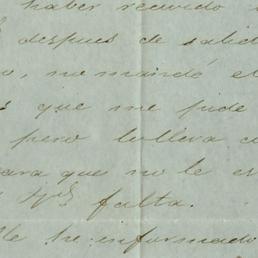 haber recivido
despues de salid
o, me mandó el
s que me pide
pero lo lleva c
para que no le es
falta.
le he informado